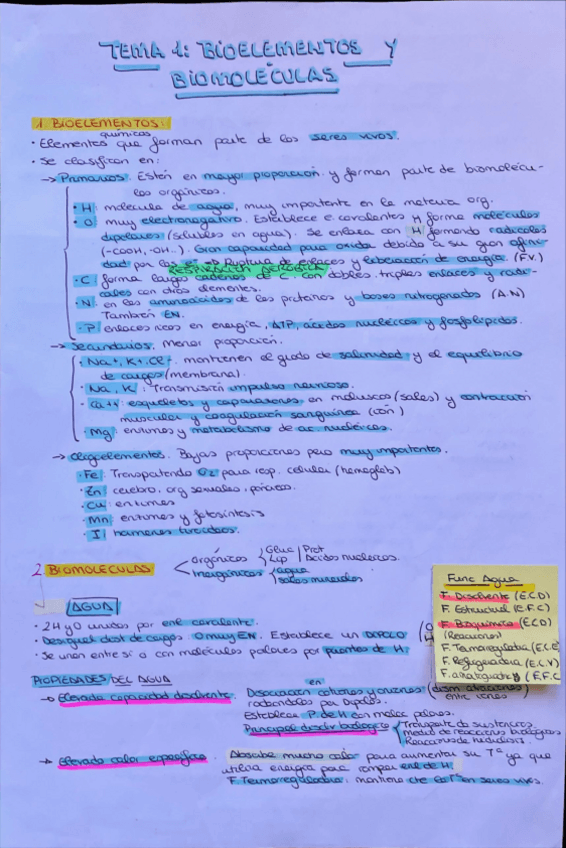 TEMA 1: BIOELEMENTOS Y
BIOMOLÉCULAS
1. BIOELEMENTOS:
químicos
· Elementos que forman parte de los seres vivos.
· Se clasifican en:
→ Primarios. Están en mayor proporción y forman parte de biomolécu-
las orgánicas.
· H: molécula de agua, muy importante en la materia org.
· O: muy electronegativo. Establece e. covalentes y forma moléculas
dipolares (solubles en agua). Se enlaza con H formando radicales
(-COOH, -OH..). Gran capacidad para oxidar debido a su gran afini-
dad por los e- → Ruptura de enlaces y liberación de energía. (F.V.)
RESPIRACIÓN AERÓBICA
· C: forma largas cadenas de C. con dobles, triples enlaces y radi-
cales con otros elementos.
· N: en los aminoácidos de las proteínas y bases nitrogenadas (A.N)
También EN.
· P: enlaces ricos en energía, ATP, ácidos nucléicos y fosfolípidos.
→ Secundarios. Menor proporción.
· Na+, K+, Cl-: mantienen el grado de salinidad y el equilibrio
de cargas (membrana).
· Na, K: Transmisión impulso nervioso.
· Ca++: esqueletos y caparazones en moluscos (sales) y contracción
muscular y coagulación sanguínea (ión)
· Mg: enzimas y metabolismo de ac. nucléicos.
→ Oligoelementos. Bajas proporciones pero muy importantes.
· Fe: Transportando O2 para resp. celular (hemoglob)
· Zn: cerebro, org sexuales, páncreas.
· Cu: enzimas
· Mn: enzimas y fotosíntesis
· I: hormonas tiroideas.
2. BIOMOLÉCULAS
orgánicas Gluc Prot
Lip Ácidos nucleicos.
Inorgánicas agua
sales minerales
AGUA
· 2H y O unidos por enl. covalente.
· Desigual dist de cargas. O muy EN. Establece un DIPOLO
· Se unen entre sí o con moléculas polares por puentes de H.
Func Agua
F. Disolvente (E.C.D)
F. Estructural (E.F.C)
F. Bioquímica (E.C.D)
(Reacciones)
F. Termoreguladora (E.C.E)
F. Refrigeradora (E.C.V)
F. amortiguadora (E.F.C)
PROPIEDADES DEL AGUA
→ Elevada capacidad disolvente. Disociación en cationes y aniones (dism atracciones
rodeándolos por dipolos. entre iones
Establecer P. de H con molec polares.
Principal disolv biológico Transporte de sustancias.
medio de reacciones biológicas
Reacciones de hidrólisis.
→ Elevado calor específico. Absorbe mucho calor para aumentar su Tª ya que
utiliza energía para romper enl de H.
F. Termoreguladora: mantiene cte la Tª en seres vivos.